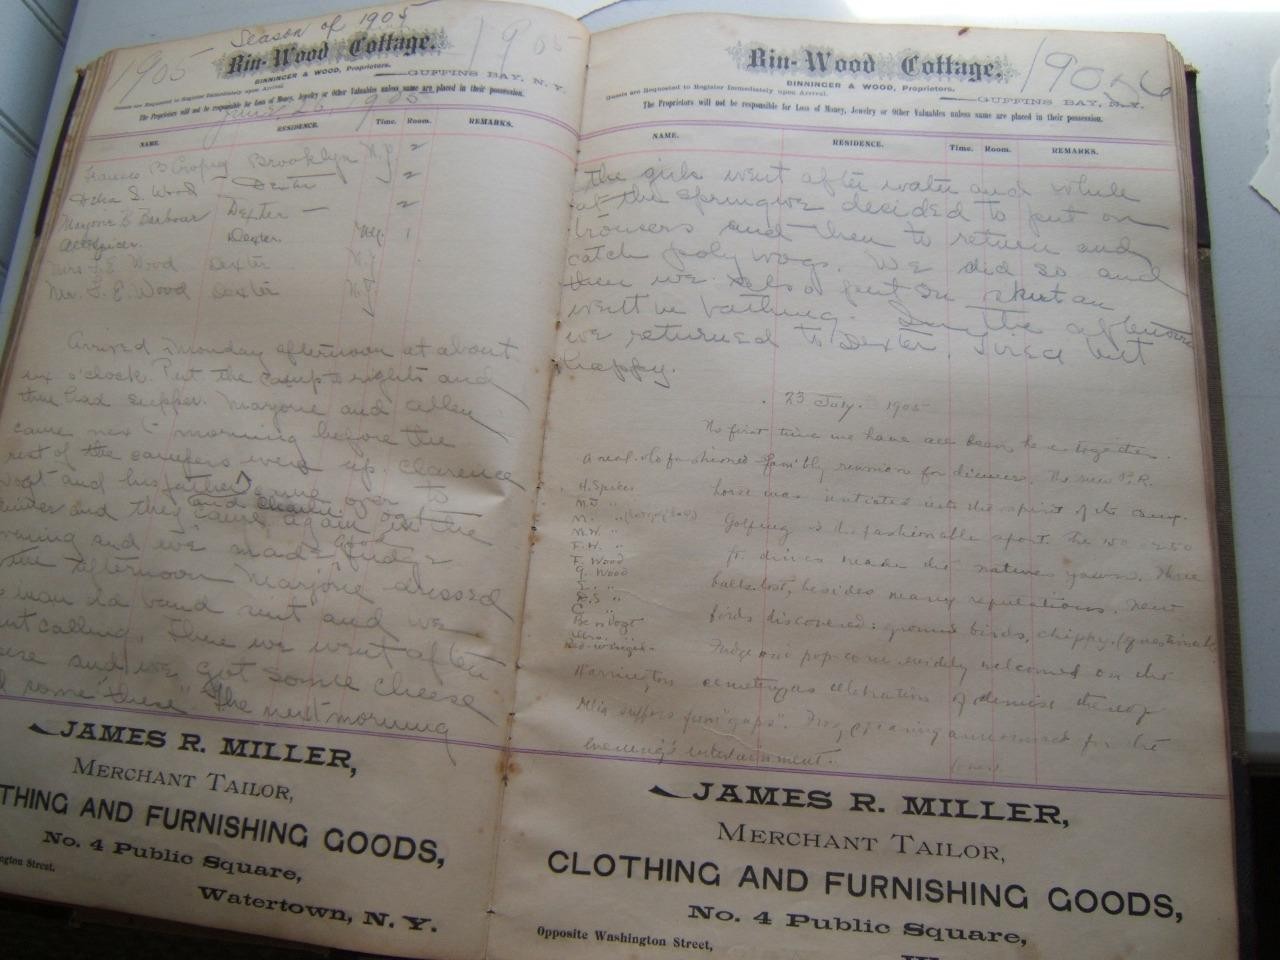 Season of 1905
1905 1905
Bin-Wood Cottage.
BINNINGER & WOOD, Proprietors.
GUFFINS BAY, N.Y.
Guests are Requested to Register Immediately upon Arrival.
The Proprietors will not be responsible for Loss of Money, Jewelry or Other Valuables unless same are placed in their possession.
June 26, 1905
NAME. RESIDENCE. Time. Room. REMARKS.
B Brooklyn N.Y. 2
S. Wood Dexter 2
Marjorie B Barbour Dexter — 2
Dexter. N.Y. 1
Mrs. F. E. Wood Dexter N.Y.
Mr. F. E. Wood Dexter N.Y.
Arrived Monday afternoon at about
six o'clock. Put the camp to rights and
then had supper. Marjorie and Allen
came next morning before the
rest of the campers were up. Clarence
Vogt and his father came over to
and Charlie
and they came again in the
good
and we made fudge
afternoon Marjorie dressed
and we
calling. Then we went after
and we got some cheese
some "there". The next morning
JAMES R. MILLER,
MERCHANT TAILOR,
THING AND FURNISHING GOODS,
No. 4 Public Square,
ngton Street.
Watertown, N. Y.
1905
Bin-Wood Cottage.
BINNINGER & WOOD, Proprietors.
GUFFINS BAY, N.Y.
Guests are Requested to Register Immediately upon Arrival.
The Proprietors will not be responsible for Loss of Money, Jewelry or Other Valuables unless same are placed in their possession.
NAME. RESIDENCE. Time. Room. REMARKS.
the girls went after water and while
at the spring we decided to put on
trousers and then to return and
catch polywogs. We did so and
then we also put on skirt an
went in bathing. In the afternoon
we returned to Dexter. Tired but
happy.
23 July. 1905
first time we have all been here together.
A real old fashioned family reunion for dinner. The new P.R.
H. Spicer horse was initiated into the spirit of the camp.
M.J. "
N. " Golfing is the fashionable sport. The 150 - 250
N.W. "
F.W. " ft drives made the natives yawn. Three
F. Wood
G. Wood balls lost, besides many reputations. New
E. "
D.S "
C " birds discovered: ground birds, chippy,
Ben Vogt
Mrs. " Fudge and pop-corn widely welcomed on the
Harrington cemetery as celebration of demise thereof
suffers from "gaps". announced for the
evening's entertainment.
JAMES R. MILLER,
MERCHANT TAILOR,
CLOTHING AND FURNISHING GOODS,
No. 4 Public Square,
Opposite Washington Street,